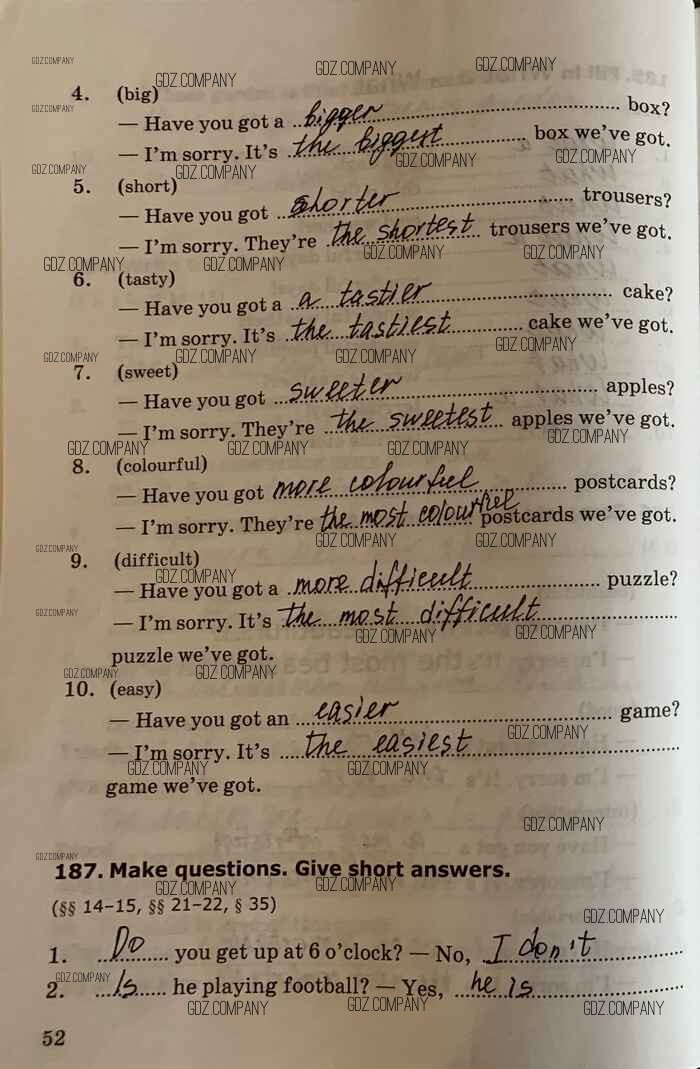 4. (big)
— Have you got a bigger box?
— I'm sorry. It's the biggest box we've got.
5. (short)
— Have you got shorter trousers?
— I'm sorry. They're the shortest trousers we've got.
6. (tasty)
— Have you got a a tastier cake?
— I'm sorry. It's the tastiest cake we've got.
7. (sweet)
— Have you got sweeter apples?
— I'm sorry. They're the sweetest apples we've got.
8. (colourful)
— Have you got more colourful postcards?
— I'm sorry. They're the most colourful postcards we've got.
9. (difficult)
— Have you got a more difficult puzzle?
— I'm sorry. It's the most difficult
puzzle we've got.
10. (easy)
— Have you got an easier game?
— I'm sorry. It's the easiest
game we've got.
187. Make questions. Give short answers.
(§§ 14–15, §§ 21–22, § 35)
1. Do you get up at 6 o'clock? — No, I don't
2. Is he playing football? — Yes, he is
52
GDZ.COMPANY